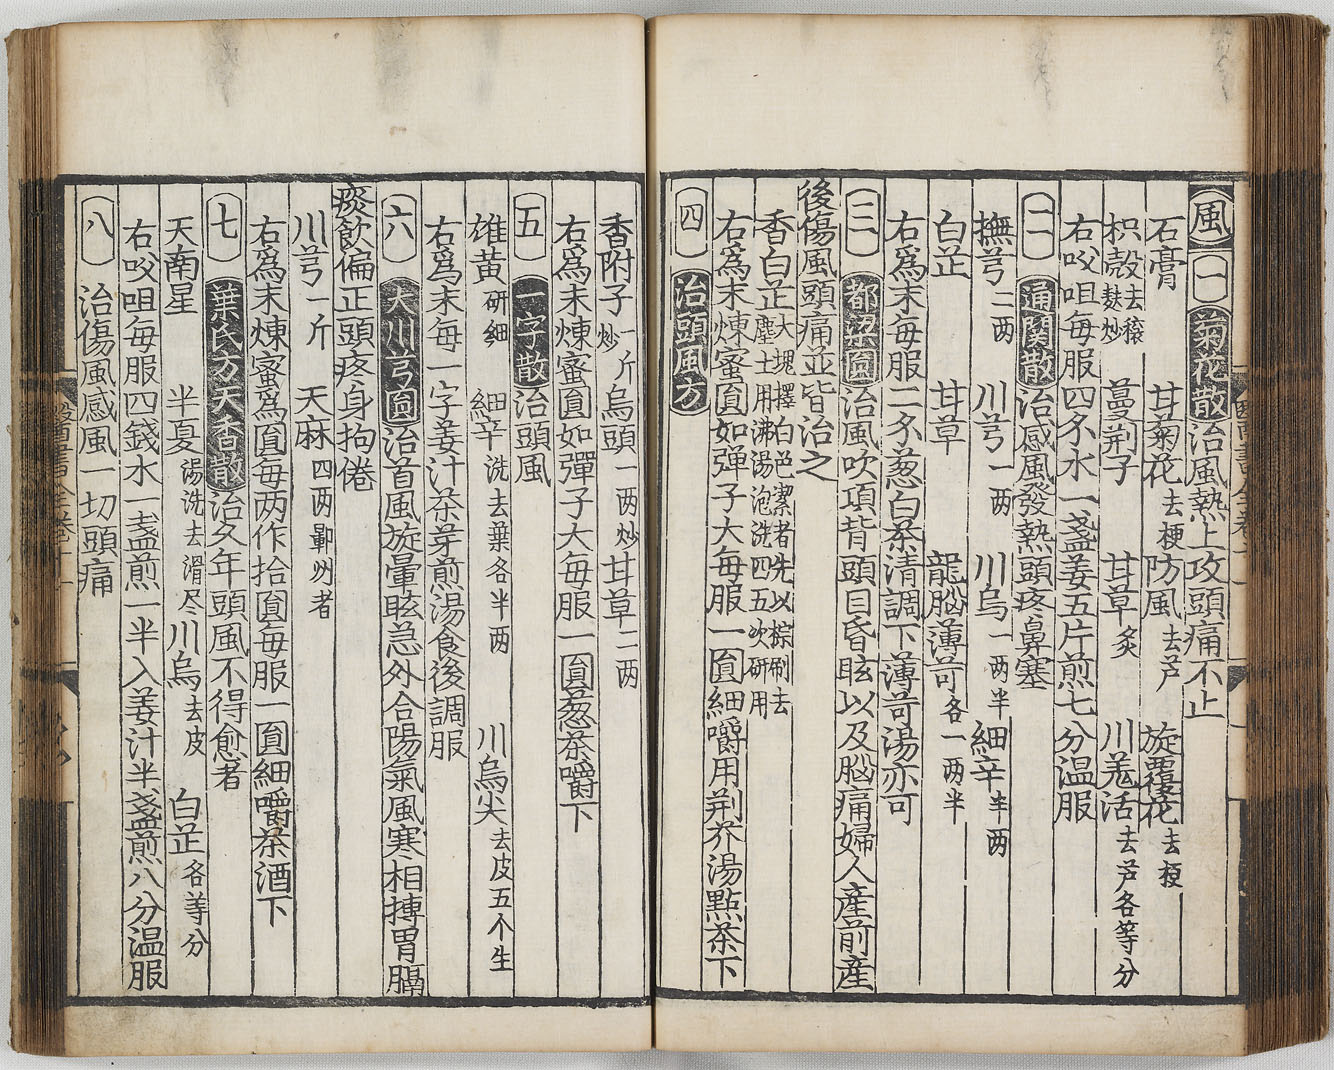 風 一 菊花散 治風熱上攻頭痛不止
石膏 甘菊花去梗 防風去芦 旋覆花去梗
枳殼去穰麸炒 蔓荆子 甘草炙 川羗活去芦各等分
右㕮咀毎服四不水一盞姜五片煎七分温服
二 通関散 治感風發熱頭疼鼻塞
撫芎二两 川芎一两 川烏一两半 細辛半两
白芷 甘草 龍脳薄苛各一两半
右爲末毎服二不葱白茶清調下薄苛湯亦可
三 都梁圎 治風吹項背頭目昏眩以及脳痛婦人産前産
後傷風頭痛並皆治之
香白芷大塊擇白色潔者先以棕刷去塵土用沸湯泡洗四五次研用
右爲末煉蜜圎如弹子大毎服一圎細嚼用荆芥湯點茶下
四 治頭風方
香附子一斤炒 烏頭一两炒 甘草二两
右爲末煉蜜圎如彈子大毎服一圎葱茶嚼下
五 一字散 治頭風
雄黄研細 細辛洗去葉各半两 川烏尖去皮五个生
右爲末毎一字姜汁茶芽煎湯食後調服
六 大川芎圎 治首風旋暈眩急外合陽氣風寒相搏胃膈
痰飲偏正頭疼身拘倦
川芎一斤 天麻四两鄆州者
右爲末煉蜜爲圎毎两作拾圎毎服一圎細嚼茶酒下
七 葉氏方天香散 治久年頭風不得愈者
天南星 半夏湯洗去滑尽 川烏去皮 白芷各等分
右㕮咀毎服四錢水一盞煎一半入姜汁半盞煎八分温服
八 治傷風感風一切頭痛